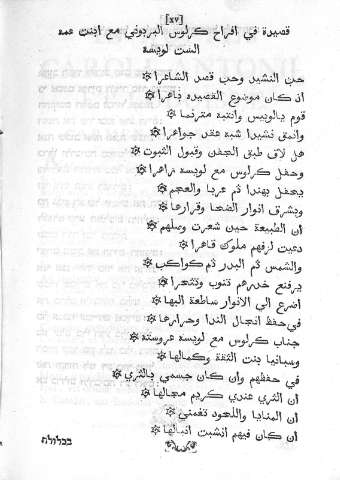 [xv]
قصيدة في افراح كرلوس البربوني مع ابنت عمه
الست لويسه
حن النشيد وحب قصد الشاعرا
اذ كان موضوع القصيده باهرا
قوم يالوتيس وانتبه مترنما
وانمق نشيدا شبه عقد جواهرا
هل لاق طبق الجفن وقبول الثبوت
وحفل كرلوس مع لويسه زاهرا
يحفل بهندا ثم عربا والعجم
وبشرق انوار الضحا وقرارها
ان الطبيعة حين شعرت وصلهم
دعيت لزفهم ملوك قاهرا
والشمس ثم البدر ثم كواكب
يرفنع خدرهم
اضرع الي الانوار ساطعة البها
في حفظ انجال الندا وحرارها
جناب كرلوس مع لويسه عروسته
وسبانيا بنت الثقة وكمالها
في حفظهم وان كان جسمي بالثري
ان الثري عندي كريم مجالها
ان المنايا واللحود تغمني
ان كان فيهم انشبت انبالها
בכלולת